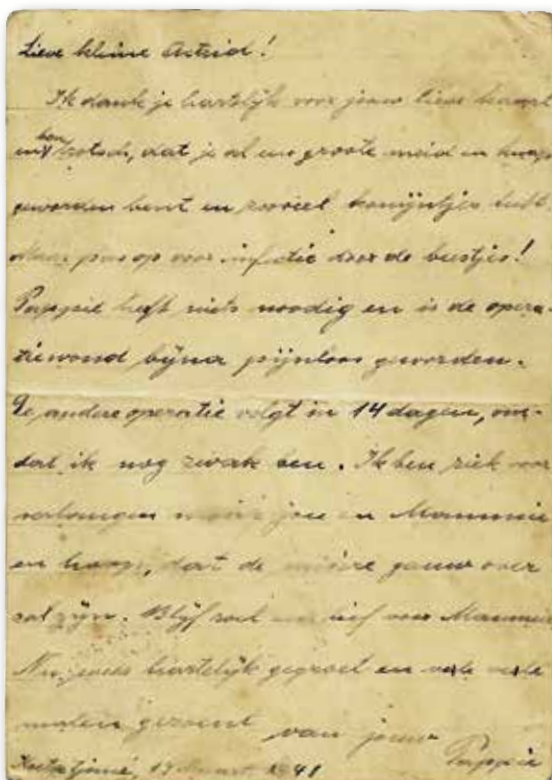 Lieve kleine Astrid!
Ik dank je hartelijk voor jouw lieve kaart
en ben trotsch, dat je al een groote meid en
geworden bent en zooveel konijntjes hebt.
Maar pas op voor infectie door de beestjes!
Pappie heeft niets noodig en is de opera-
tiewond bijna pijnloos geworden.
De andere operatie volgt in 14 dagen, om-
dat ik nog zwak ben. Ik ben ziek voor
verlangen naar jou en Mammie
en hoop, dat de misère gauw over
zal zijn. Blijf zoet en lief voor Mammie
Nu, wees hartelijk gegroet en vele vele
malen gezoend van jouw
Pappie
Maart 1941